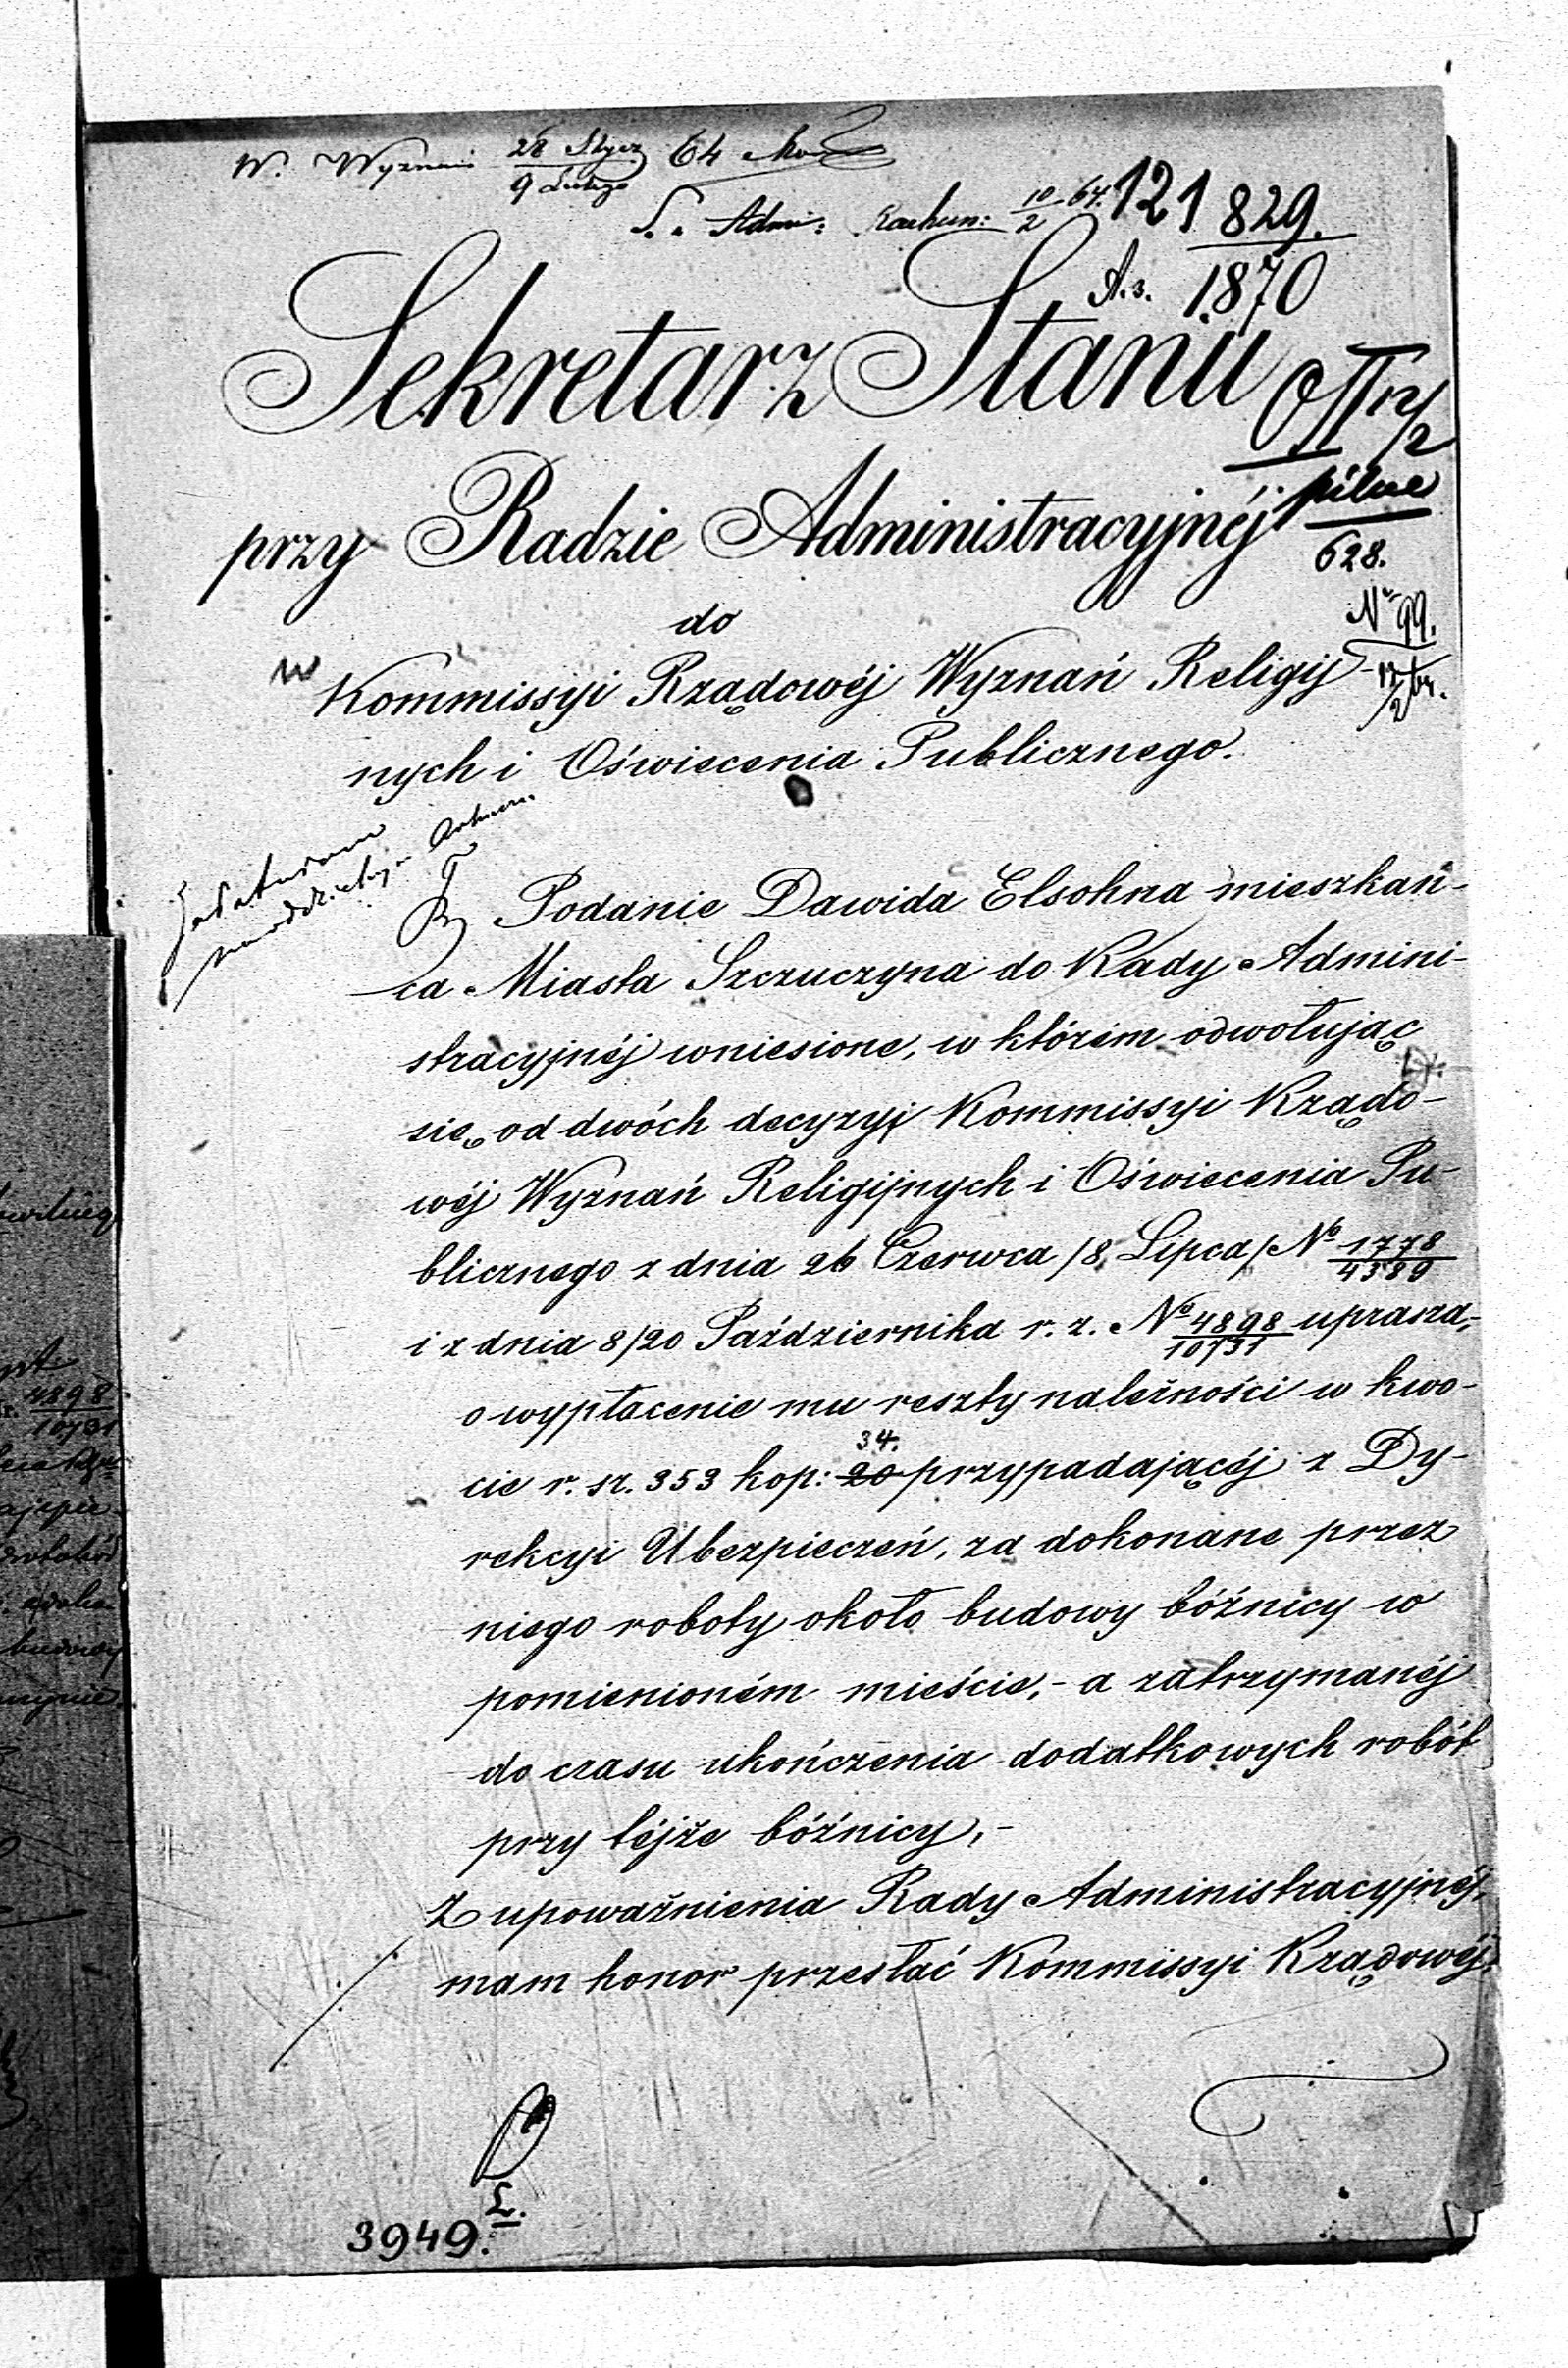 W. Wyznań 28 Stycz 64
9 Lutego
S. Adm: Rachun: 10/2 64. 121 829.
A.3. 1870
Sekretarz Stanu
przy Radzie Administracyjnéj
pilne
628.
do
No 99.
w
Kommissyi Rządowéj Wyznań Religij-
12/2 64.
nych i Oświecenia Publicznego.
Podanie Dawida Elsohna mieszkań-
ca Miasta Szczuczyna do Rady Admini-
stracyjnéj wniesione, w którém odwołując
się od dwóch decyzyj Kommissyi Rządo-
wéj Wyznań Religijnych i Oświecenia Pu-
blicznego z dnia 26 Czerwca /8 Lipca/ No 1778
4389
i z dnia 8/20 Października r. z. No 4898 uprasza,
10131
o wypłacenie mu reszty należności w kwo-
34.
cie r. sr. 353 kop: 20 przypadającéj z Dy-
rekcyi Ubezpieczeń, za dokonane przez
niego roboty około budowy bóźnicy w
pomienioném mieście,- a zatrzymanéj
do czasu ukończenia dodatkowych robót
przy téjże bóźnicy,-
Z upoważnienia Rady Administracyjnéj,
mam honor przesłać Kommissyi Rządowéj
L.
3949.
4898
10131
budowy